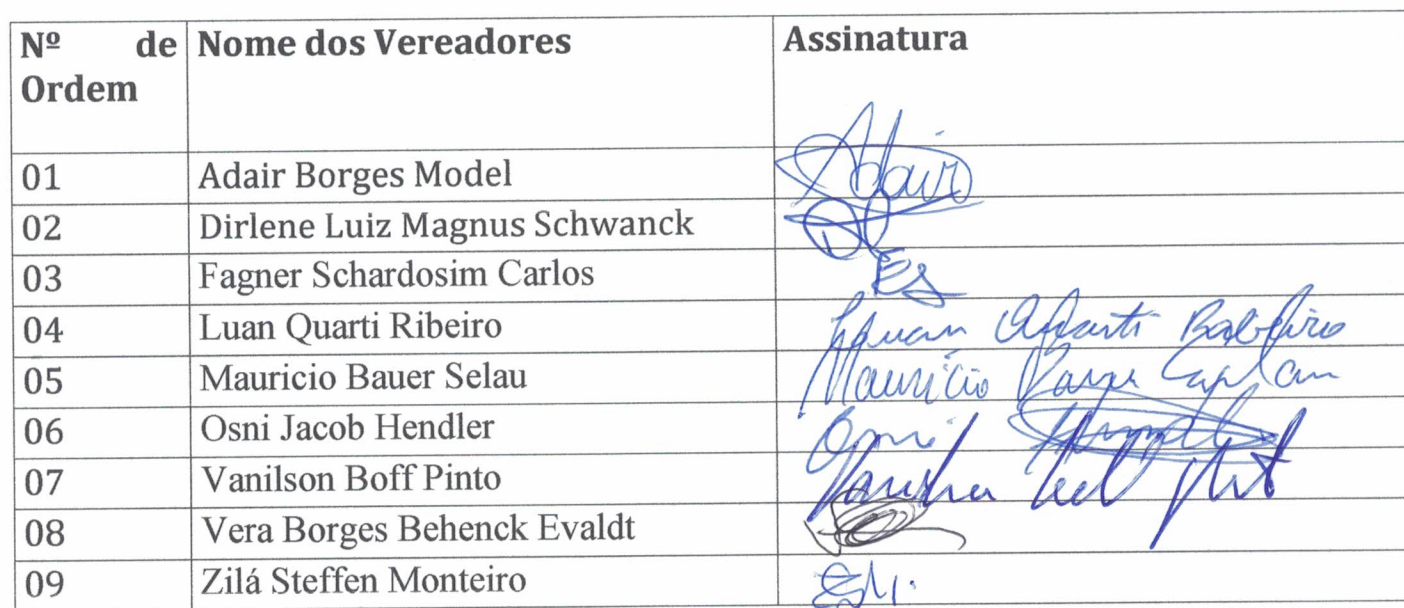 Nº de Nome dos Vereadores Assinatura
Ordem
01 Adair Borges Model Adair
02 Dirlene Luiz Magnus Schwanck
03 Fagner Schardosim Carlos
04 Luan Quarti Ribeiro Luan
05 Mauricio Bauer Selau Mauricio
06 Osni Jacob Hendler Osni
07 Vanilson Boff Pinto
08 Vera Borges Behenck Evaldt
09 Zilá Steffen Monteiro